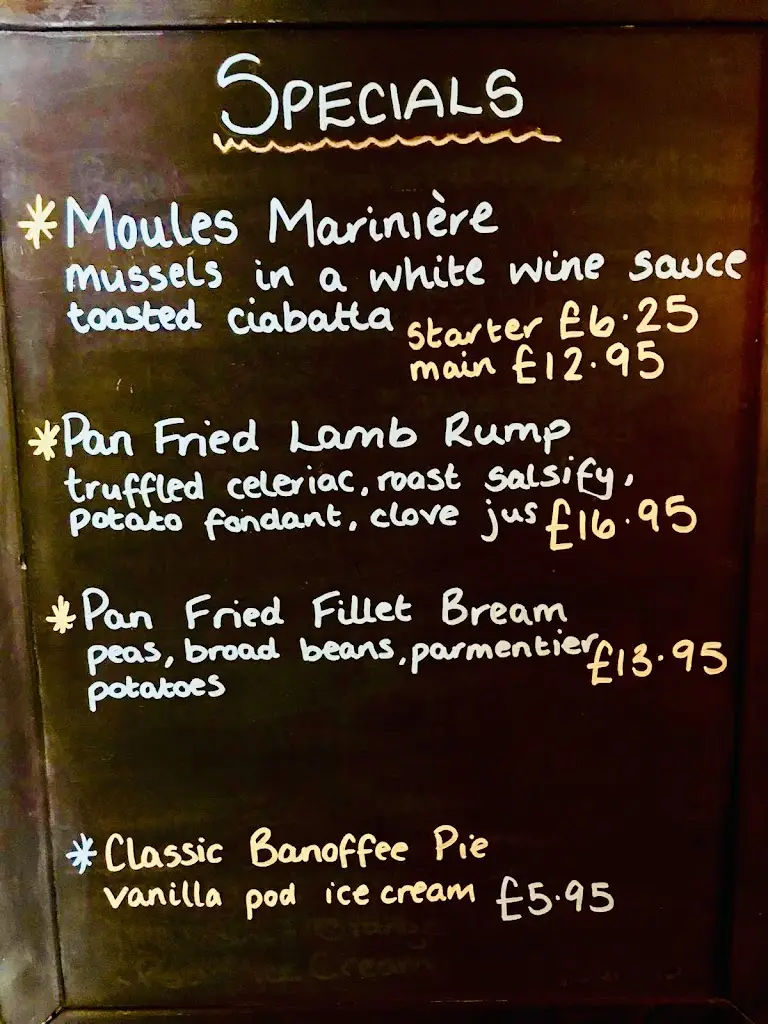 SPECIALS
* Moules Marinière
mussels in a white wine sauce
toasted ciabatta starter £6.25
main £12.95
* Pan Fried Lamb Rump
truffled celeriac, roast salsify,
potato fondant, clove jus £16.95
* Pan Fried Fillet Bream
peas, broad beans, parmentier £13.95
potatoes
* Classic Banoffee Pie
vanilla pod ice cream £5.95